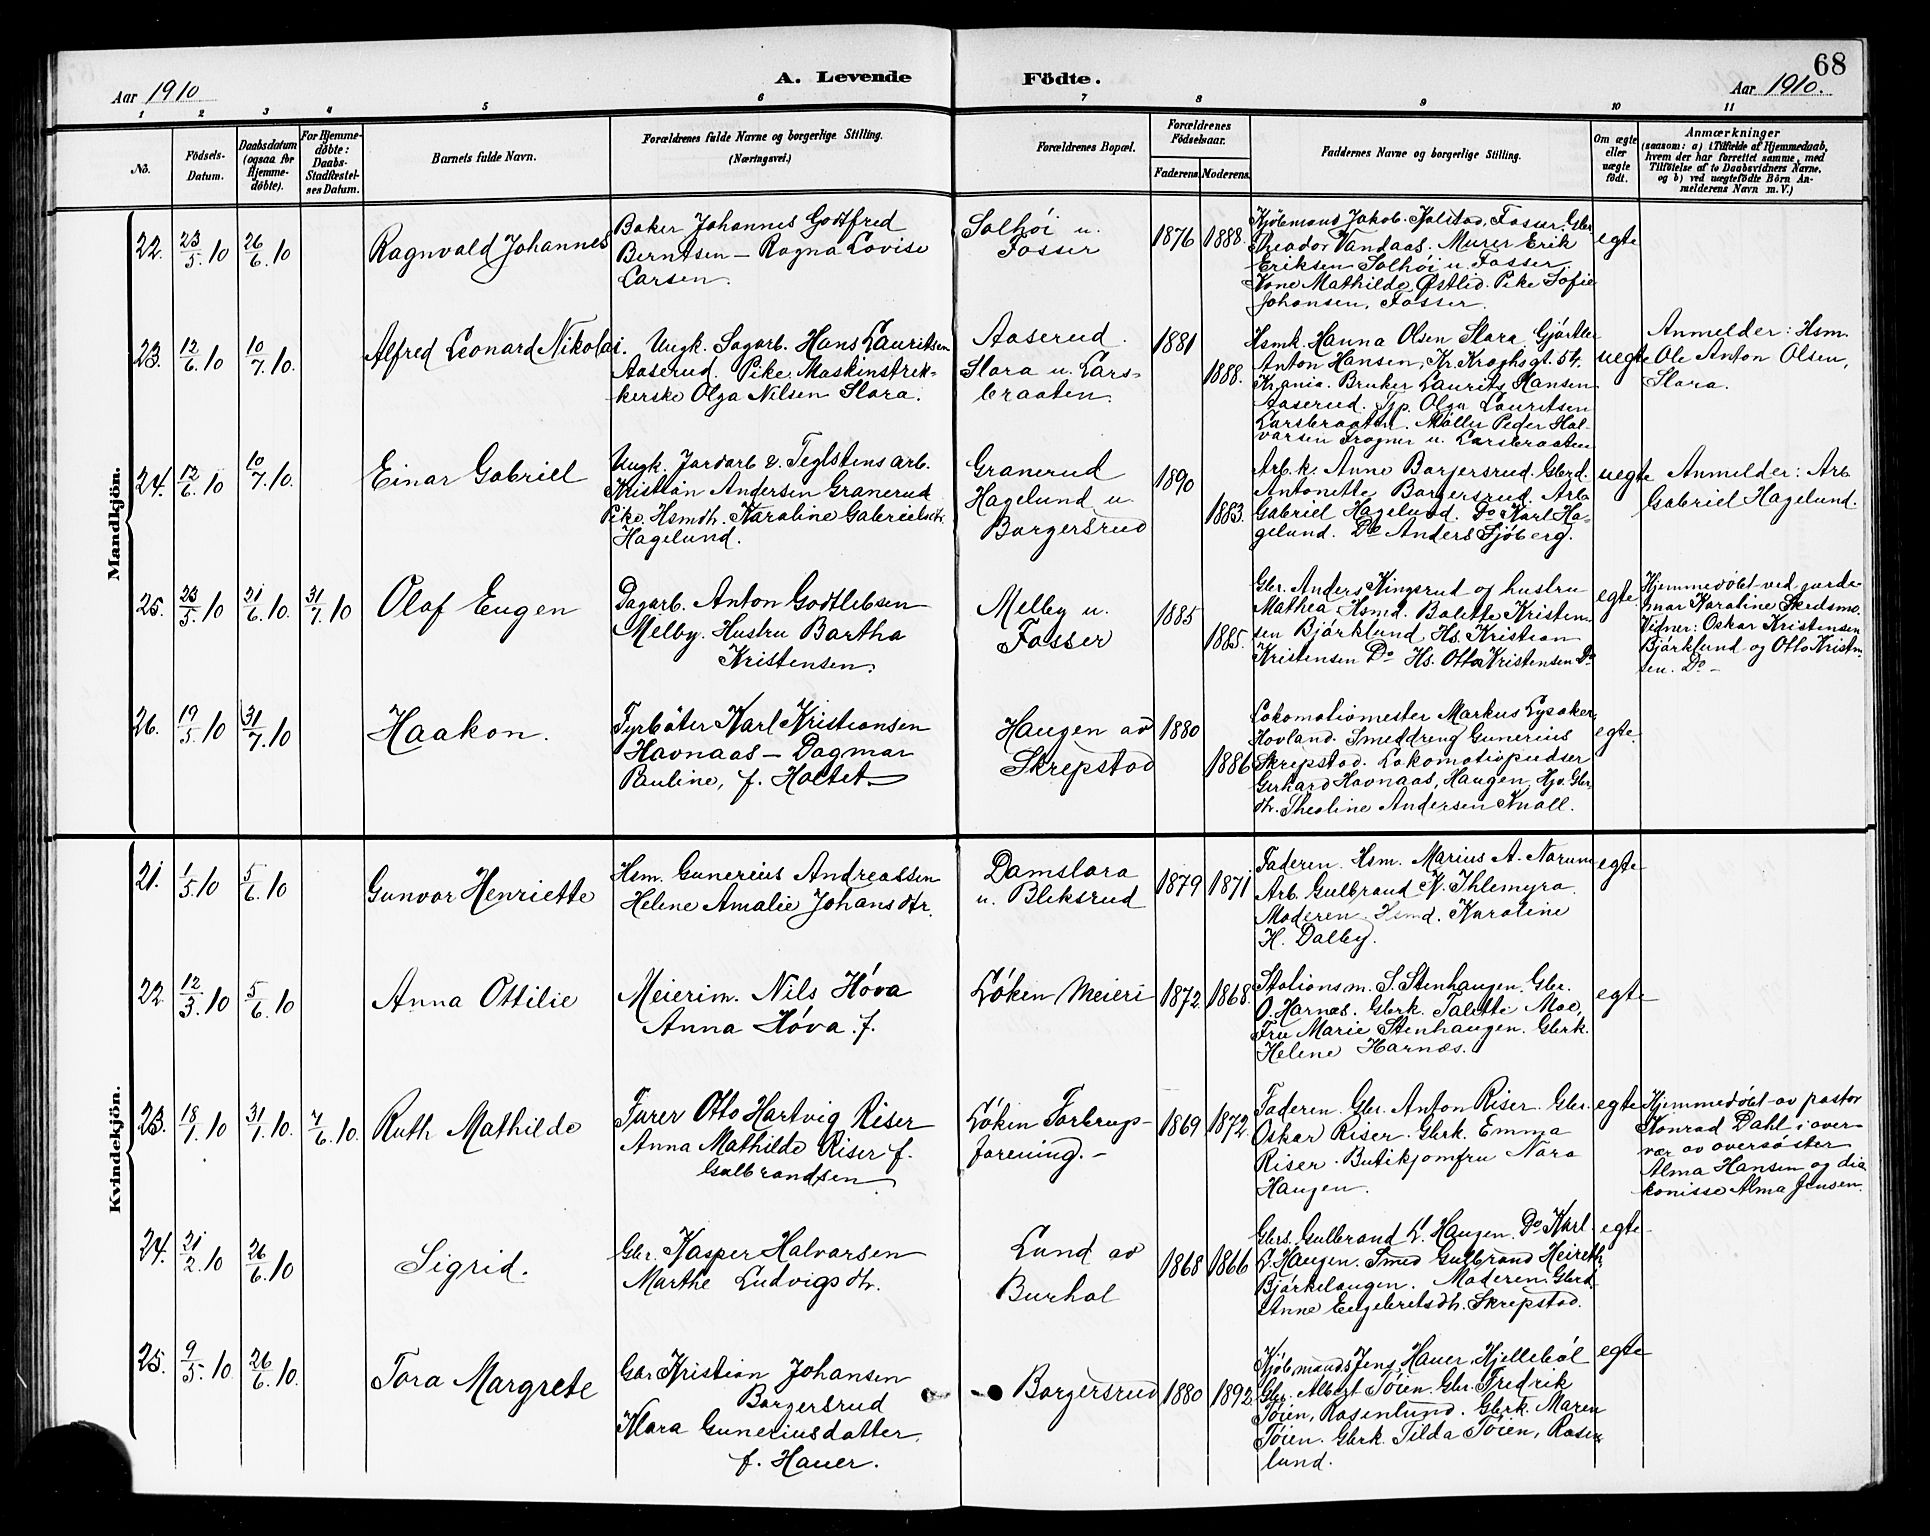 68
Aar 1910
A. Levende Födte.
Aar 1910.
1 2 3 4 5 6 7 8 9 10 11
No.
Födsels-
Datum.
Daabsdatum
(ogsaa for
Hjemme-
döbte).
For Hjemme-
döbte:
Daabs-
Stadfæstel-
ses Datum.
Barnets fulde Navn.
Forældrenes fulde Navne og borgerlige Stilling.
(Næringsvei.)
Forældrenes Bopæl.
Forældrenes
Födselsaar.
Faderens
Moderens.
Faddernes Navne og borgerlige Stilling.
Om ægte
eller
uægte
födt.
Anmærkninger
(saasom: a) i Tilfælde af Hjemmedaab,
hvem der har forrettet samme, med
Tilföielse af to Daabsvidners Navne.
og b) ved uægtefödte Börn An-
melderens Navn m. V.)
Mandkjön.
22.
23/5.10
26/6.10
Ragnvald Johannes
Baker Johannes Godtfred
Berntsen – Ragna Lovise
Larsen.
Solhöi u.
Fosser
1876
1888.
Kjöbmand Jakob Kjolstad, Fosser. Gbr
Theodor Vandaas. Murer Erik
Eriksen Solhöi u. Fosser.
Kone Mathilde Östlid. Pike Sofie
Johansen, Fosser.
egte
23.
12/6.10
10/7.10.
Alfred Leonard Nikolai.
Ungk. Sagarb. Hans Lauritsen
Aaserud. Pike. Maskinstrik-
kerske Olga Nilsen Slora.
Aaserud.
Slora u. Lars-
braaten.
1881
1888.
Hsmk. Hanna Olsen Slora. Gjörtler
Anton Hansen, Kr. Kroghsgt. 54.
Kr.ania. Bruker Laurits Hansen
Aaserud. Tjp. Olga Lauritsen
Larsbraaten. Möller Peder Hal-
varsen Frogner u. Larsbraaten
uegte
Anmelder: Hsm.
Ole Anton Olsen,
Slora.
24.
12/6.10
10/7.10.
Einar Gabriel
Ungk. Jordarb. & Teglstensarb.
Kristian Andersen Granerud
Pike. Hsmdh. Karoline Gabrielsdtr.
Hagelund.
Granerud
Hagelund u.
Borgersrud
1890
1883.
Arb.k. Anne Borgersrud. Gbrd.
Antonette Borgersrud. Arb.
Gabriel Hagelund. Do Karl Ha-
gelund. Do Anders Sjöberg.
uegte
Anmelder: Arb.
Gabriel Hagelund.
25.
23/5.10
21/6.10.
31/7.10
Olaf Eugen
Dagarb. Anton Godtlebsen
Melby. Hustru Bertha
Kristensen.
Melby u.
Fosser
1885
1885.
Gbr. Anders Kingsrud og hustru
Mathea. Hsmd. Bolette Kristen-
sen Björklund. Hs. Kristian
Kristensen Do Hs. Otto Kristensen Do
egte
Hjemmedöbt ved jorde-
mor Karoline Skedsmo.
Vidner: Oskar Kristensen
Björklund og Otto Kristen-
sen. Do –
26.
19/5.10
31/7.10
Haakon.
Fyrböter Karl Kristiansen
Havnaas – Dagmar
Pauline, f. Holtet
Haugen av
Skrepstad
1880
1886
Lokomotivmester Markus Lysaker,
Hovland. Smeddreng Gunerius
Skrepstad. Lokomotivpudser
Gerhard Havnaas, Haugen. Hjv. Gbr.
dtr. Theoline Andersen Knoll.
egte.
Kvindekjön.
21.
1/5.10
5/6.10
Gunvor Henriette
Hsm. Gunerius Andreassen
Helene Amalie Johansdtr.
Damslora
u. Bleksrud
1879
1871
Faderen. Hsm. Marius A. Narum
Arb. Gulbrand K. Ihlemyra.
Moderen. Hsmd. Karoline
H. Dalby.
egte
22
12/3.10
5/6.10
Anna Ottilie
Meierim. Nils Höva
Anna Höva. f.
Löken Meieri
1872.
1868.
Stationsm. S. Stenhaugen. Gbr.
O. Harnæs. Gbrk. Talette Moe,
Fru Marie Stenhaugen. Gbrk.
Helene Harnæs.
egte
23.
18/1.10
31/1.10.
7/6.10.
Ruth Mathilde
Furer Otto Hartvig Riser
Anna Mathilde Riser f.
Gulbrandsen
Löken Forbrugs-
forening. –
1869
1872.
Faderen. Gbr. Anton Riser. Gbr.
Oskar Riser. Gbrk. Emma
Riser. Butikjomfru Nora
Haugen.
egte
Hjemmedöbt av pastor
Konrad Dahl i over-
vær av oversöster
Alma Hansen og dia
konisse Alma Jensen.
24.
21/2.10
26/6.10
Sigrid.
Gbr. Kasper Halvorsen
Marthe Ludvigsdtr.
Lund av
Burhol
1868
1866
Gbrs. Gulbrand L. Haugen. Do Karl
L. Haugen. Smed Gulbrand
Björkelangen. Moderen. Gbrd.
Anne Engebretsdtr. Skrepstad.
egte
25.
9/5.10
26/6.10.
Tora Margrete
Gbr Kristian Johansen
Borgersrud
Klara Guneriusdatter
f. Hauer.
Borgersrud
1880
1892.
Kjöbmands Jens Hauer, Kjelleböl
Gbr. Albert Töien. Gbr. Fredrik
Töien, Rosenlund. Gbrk. Maren
Töien. Gbrk. Tilda Töien, Rosen-
lund.
egte